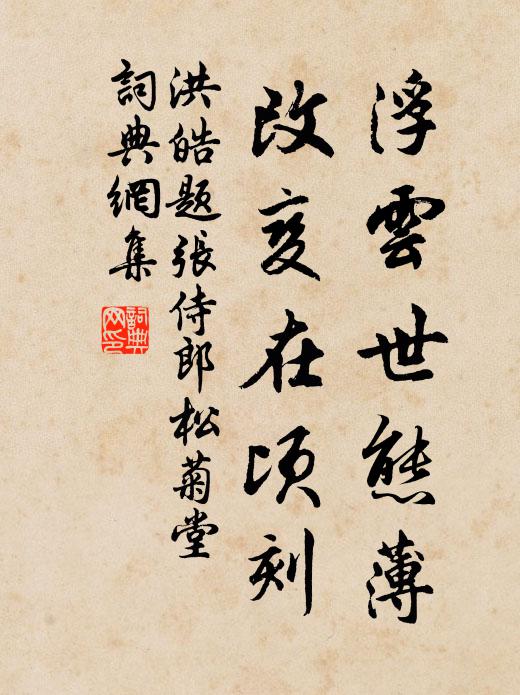 浮雲世態薄
改变在頃刻
洪皓題張侍郎松菊堂
詞典網集
詞典網印